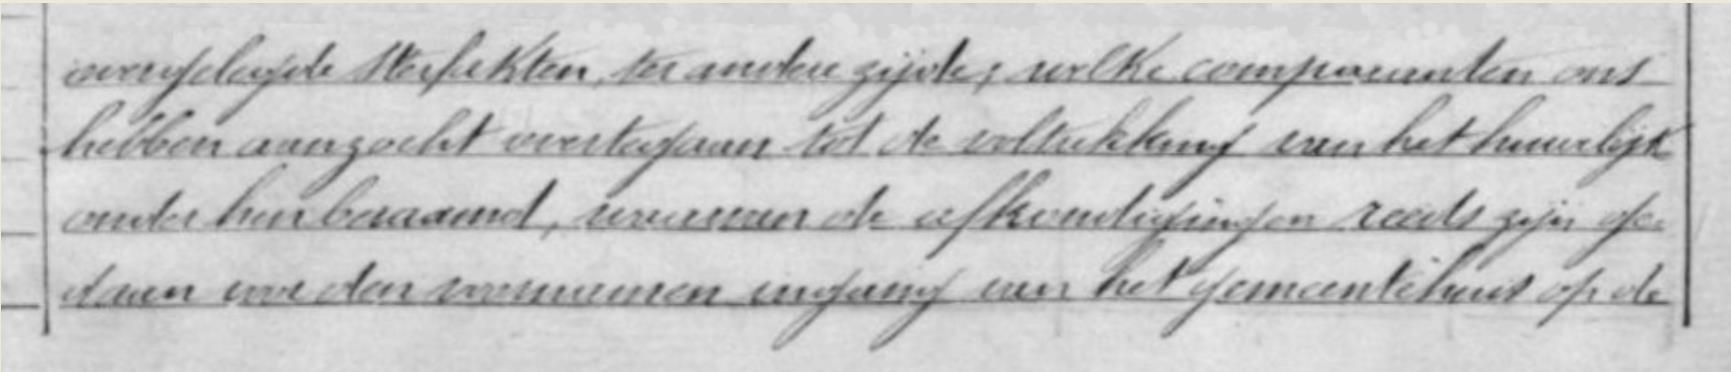 overgelegde sterfakten, ter andere zijde; welke comparanten ons
hebben aangezocht overtegaan tot de voltrekking van het huwelijk
onder hun beraamd, waarvan de afkondigingen reeds zijn ge-
daan voor den voornamen ingang van het gemeentehuis op de